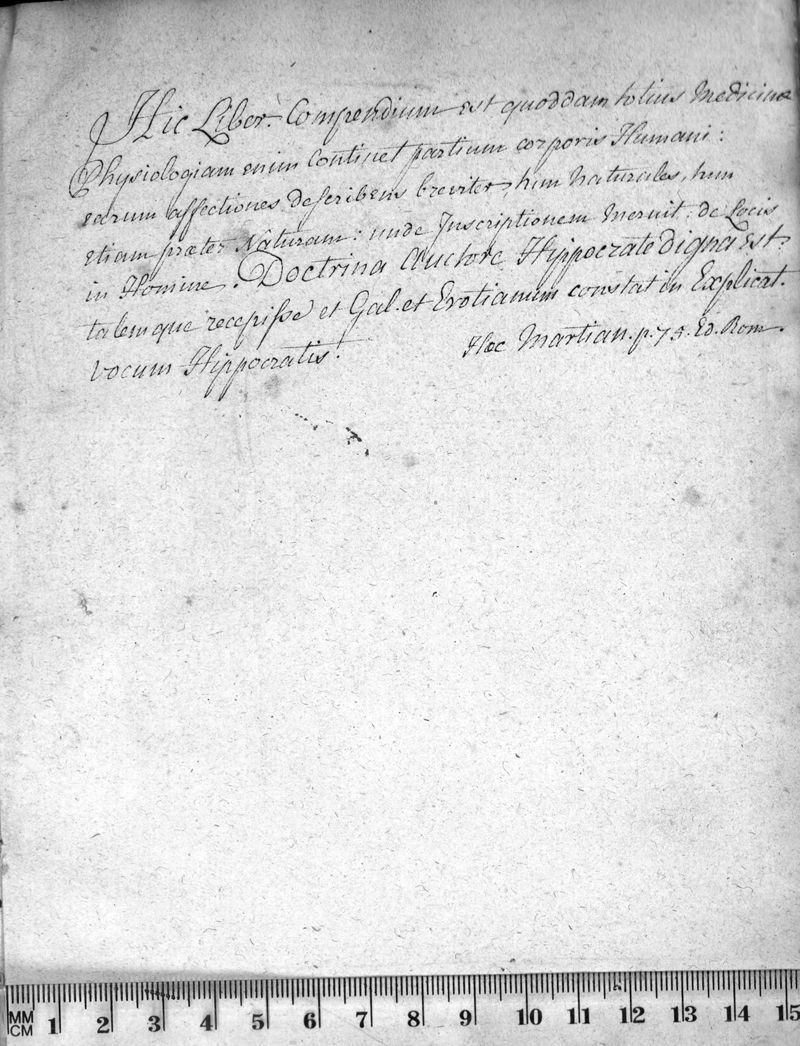 Hic Liber Compendium est quoddam totius Medicinæ
Physiologiam enim continet partium corporis Humani:
earum affectiones describens breviter, tum Naturales, tum
etiam præter Naturam: unde Inscriptionem meruit: de Locis
in Homine. Doctrina Auctore Hippocrate digna est:
talemque recepisse et Gal. et Erotianum constat in Explicat.
vocum Hippocratis.
Hæc Martian. p. 75. Ed. Rom.
MM
CM 1 2 3 4 5 6 7 8 9 10 11 12 13 14 15